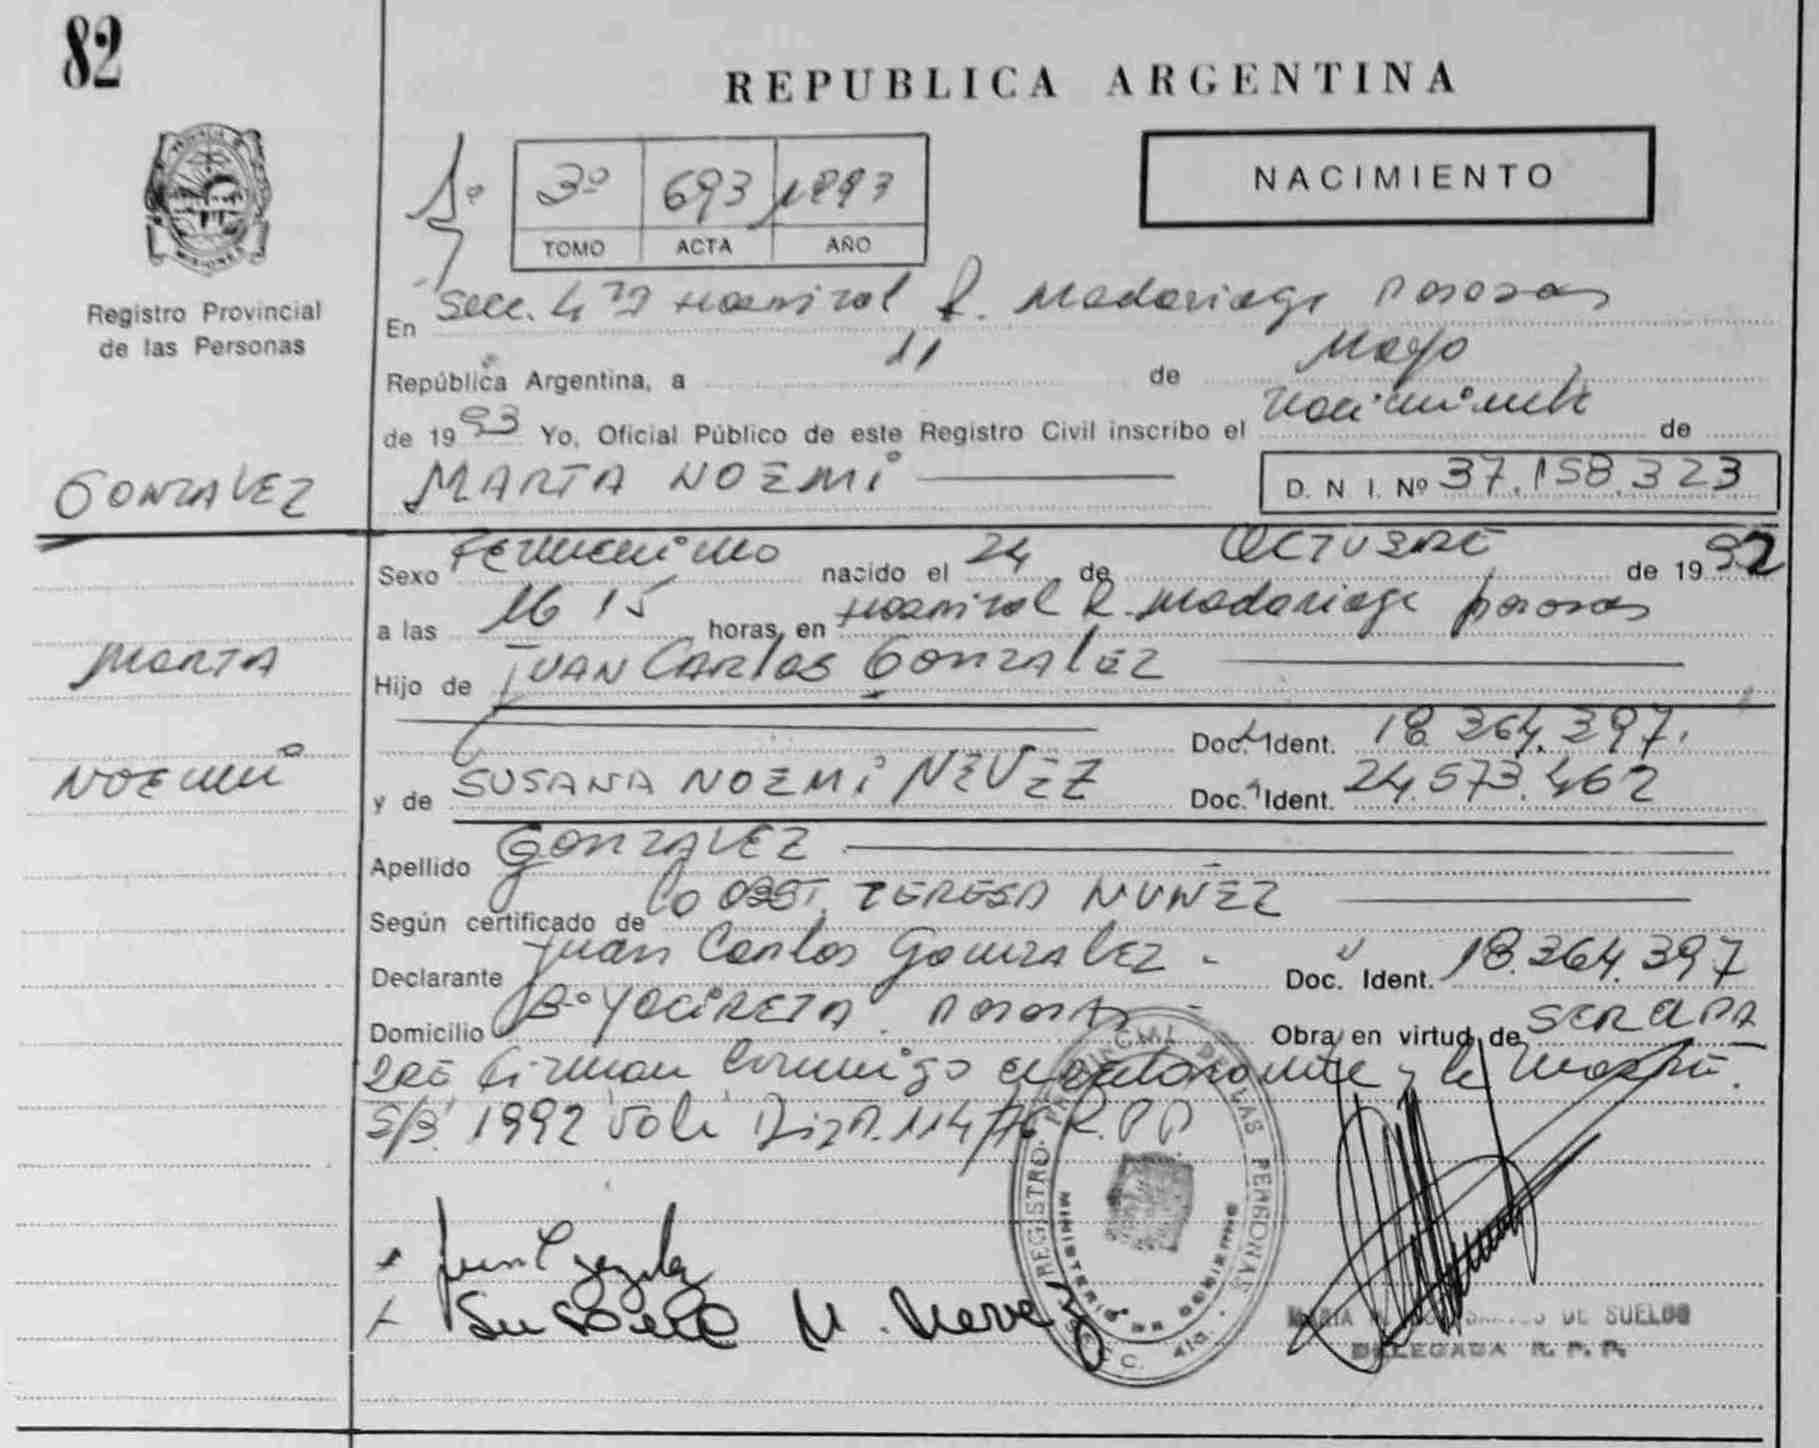 82
REPUBLICA ARGENTINA
NACIMIENTO
1º 3º 693 1993
TOMO ACTA AÑO
Registro Provincial
de las Personas
En Secc. 4ta Hospital R. Madariaga Posadas
República Argentina, a 11 de Mayo
de 1993 Yo, Oficial Público de este Registro Civil inscribo el Nacimiento de
GONZALEZ
MARTA NOEMI
D. N I. Nº 37.158.323
Sexo Femenino nacido el 24 de OCTUBRE de 1992
a las 16 15 horas, en Hospital R. Madariaga Posadas
MARTA
Hijo de JUAN CARLOS GONZALEZ
Doc. Ident. 18.364.397.
NOEMI
y de SUSANA NOEMI NEVEZ Doc. Ident. 24.573.462
Apellido GONZALEZ
Según certificado de la OBST. TERESA NUÑEZ
Declarante Juan Carlos Gonzalez - Doc. Ident. 18.364.397
Domicilio Bº YACIRETA. Posadas Obra en virtud de SER EL PA
DRE Firman conmigo el declarante y la madre.
S/B. 1992 Vale 114/76 R.P.P.
REGISTRO PROVINCIAL DE LAS PERSONAS
MINISTERIO DE GOBIERNO
SECC. 4ta.
Susana N. Nevez
MARIA DE SUELDO
DELEGADA R. P. P.